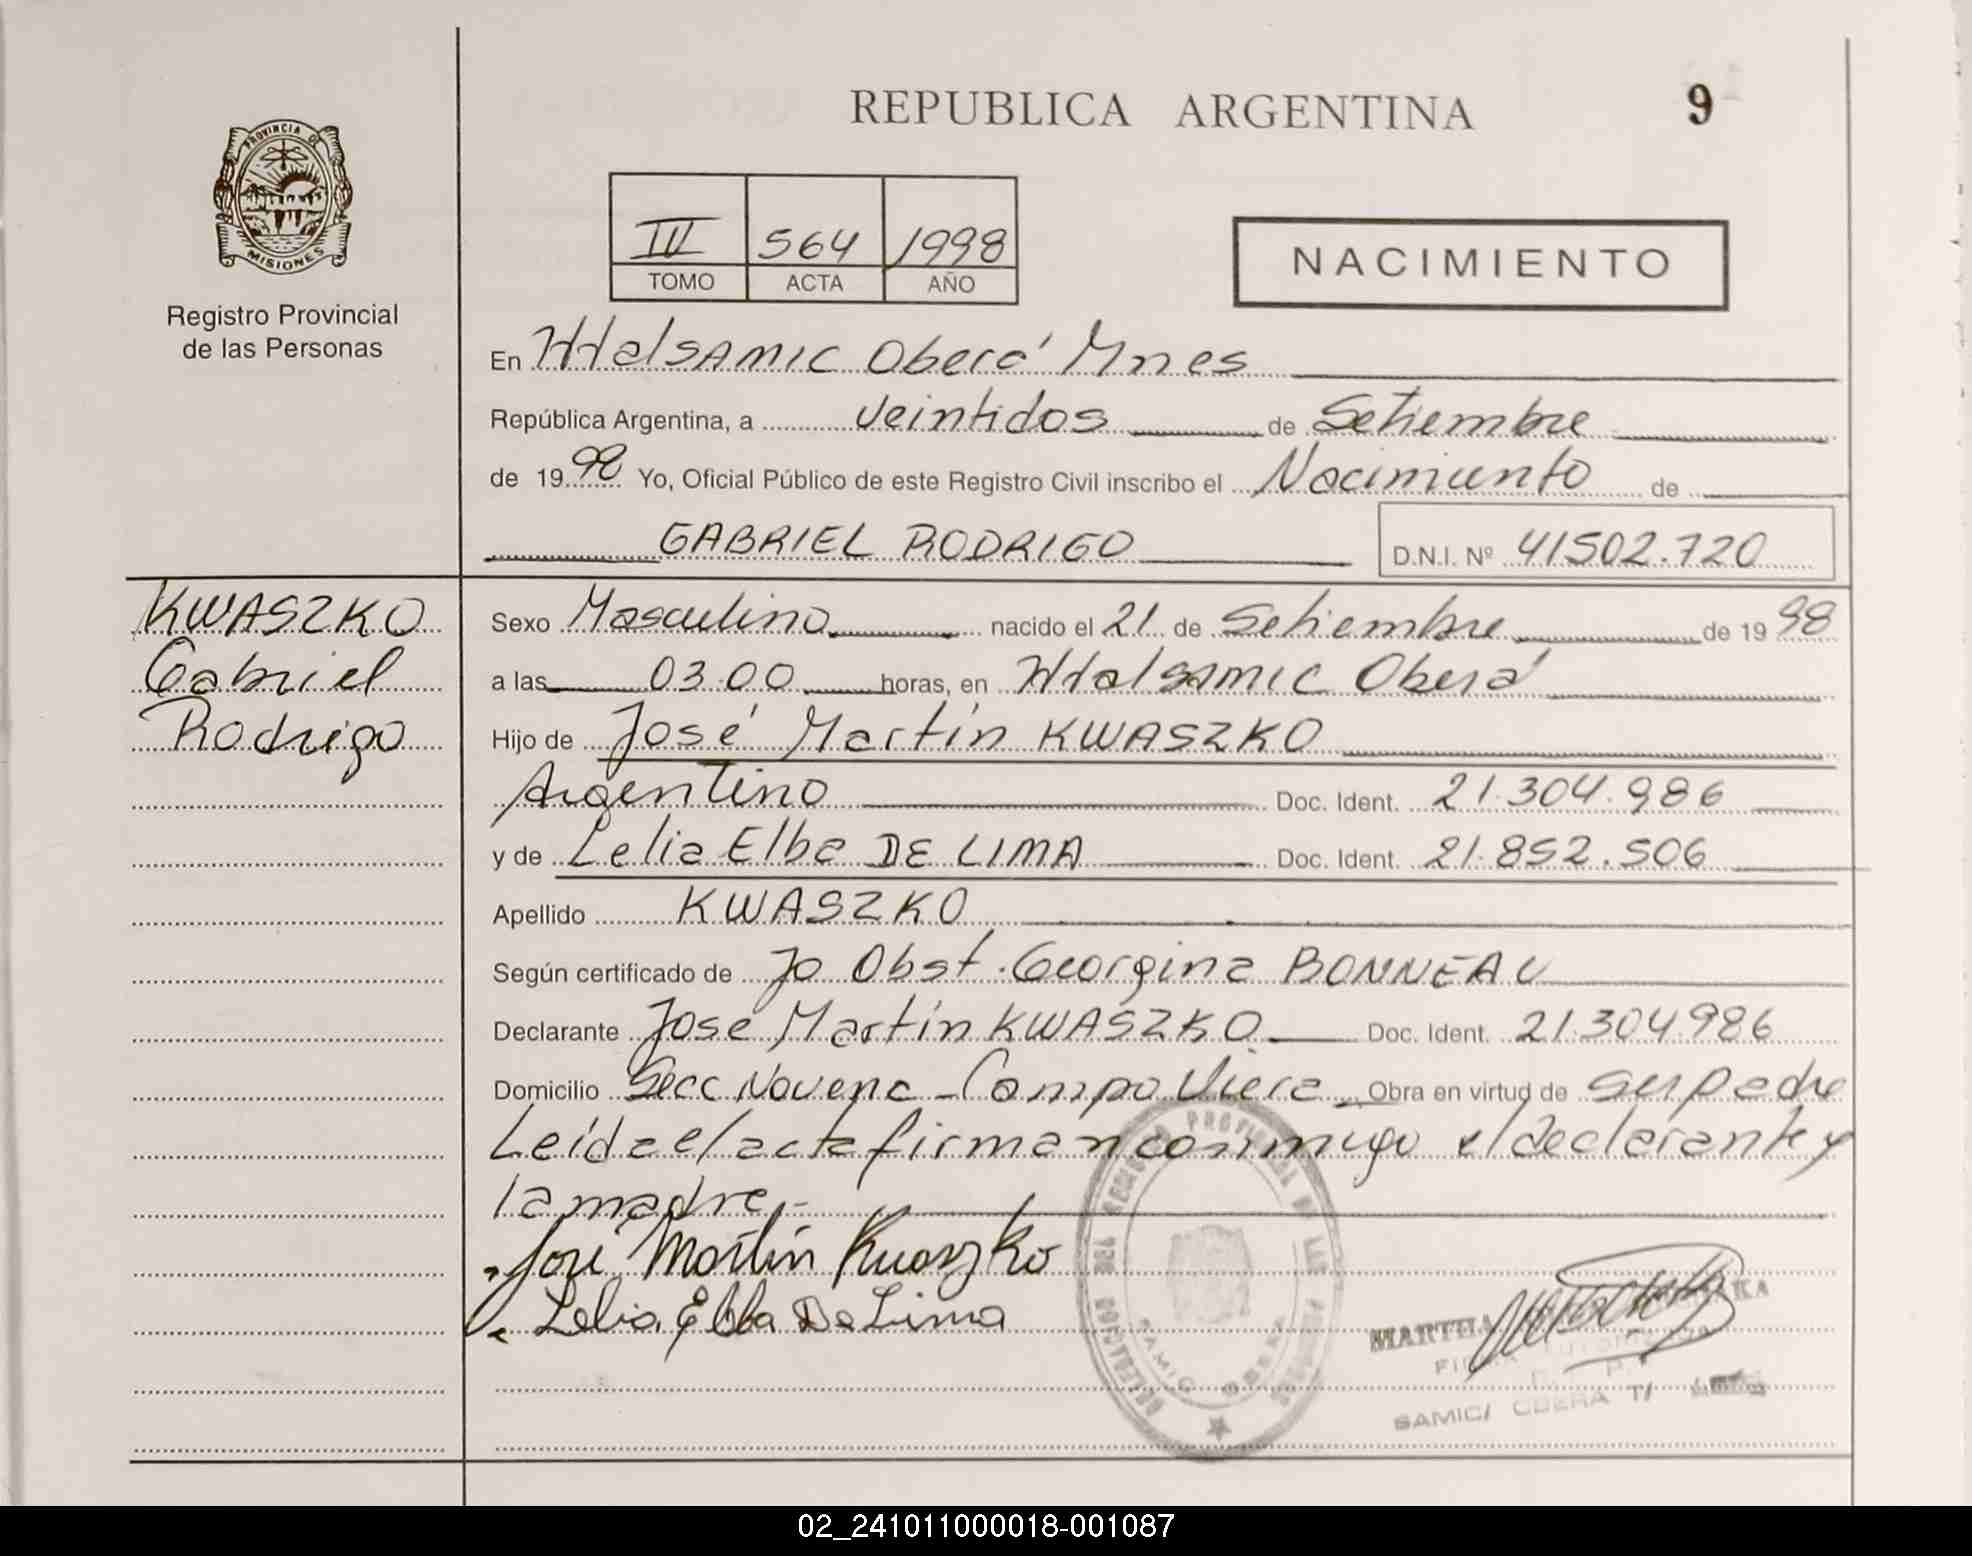 REPUBLICA ARGENTINA
9
PROVINCIA DE
MISIONES
Registro Provincial
de las Personas
IV 564 1998
TOMO ACTA AÑO
NACIMIENTO
En Htalsamic Oberá Mnes
República Argentina, a veintidos de Setiembre
de 1998 Yo, Oficial Público de este Registro Civil inscribo el Nacimiento de
GABRIEL RODRIGO D.N.I. Nº 41502.720
KWASZKO
Gabriel
Rodrigo
Sexo Masculino nacido el 21 de Setiembre de 1998
a las 03.00 horas, en Htalsamic Oberá
Hijo de José Martín KWASZKO
Argentino Doc. Ident. 21.304.986
y de Lelia Elba DE LIMA Doc. Ident. 21.852.506
Apellido KWASZKO
Según certificado de Obst. Georgina BONNEAU
Declarante José Martín KWASZKO Doc. Ident. 21.304.986
Domicilio Secc Novena - Campo Viera Obra en virtud de ser padre
Leída el acta firman conmigo el declarante y
la madre.-
José Martín Kuaszko
Lelia Elba De Lima
MARTHA
SAMIC/ OBERA
02_241011000018-001087